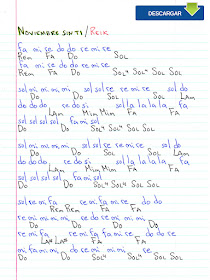 DESCARGAR
NOVIEMBRE SIN TI / REIK
fa mi re do do re mi re
Rem FA DO SOL
fa mi re do do re mi re
Rem FA DO SOL4 SOL4 SOL SOL
sol mi mi mi mi sol sol re re mi re sol do
DO DO SOL SOL LAm
do do do re do si sol la la la la fa
LAm Mim Mim FA FA
fa sol sol sol fa mi sol
DO DO SOL4 SOL4 SOL SOL
sol mi mi mi mi sol sol re re mi re sol do
DO DO SOL SOL LAm
do do do re do si sol la la la fa
LAm Mim Mim FA FA
sol sol sol sol fa mi sol
DO DO SOL4 SOL4 SOL SOL
sol re mi fa re mi fa mi re do do
Rem Rem FA FA DO
re mi mi mi mi re do re mi mi mi
DO DO DO
re mi fa re mi fa fa mi re do do
LAm LAm FA FA
mi fa mi mi do re mi mi mi re
DO DO SOL4 SOL4 SOL SOL